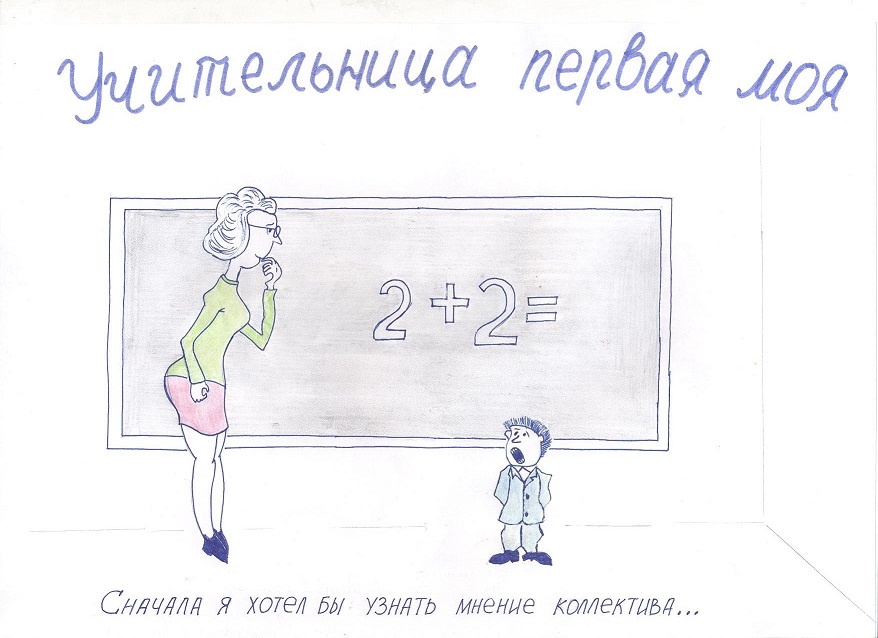 Учительница первая моя
2+2=
Сначала я хотел бы узнать мнение коллектива...